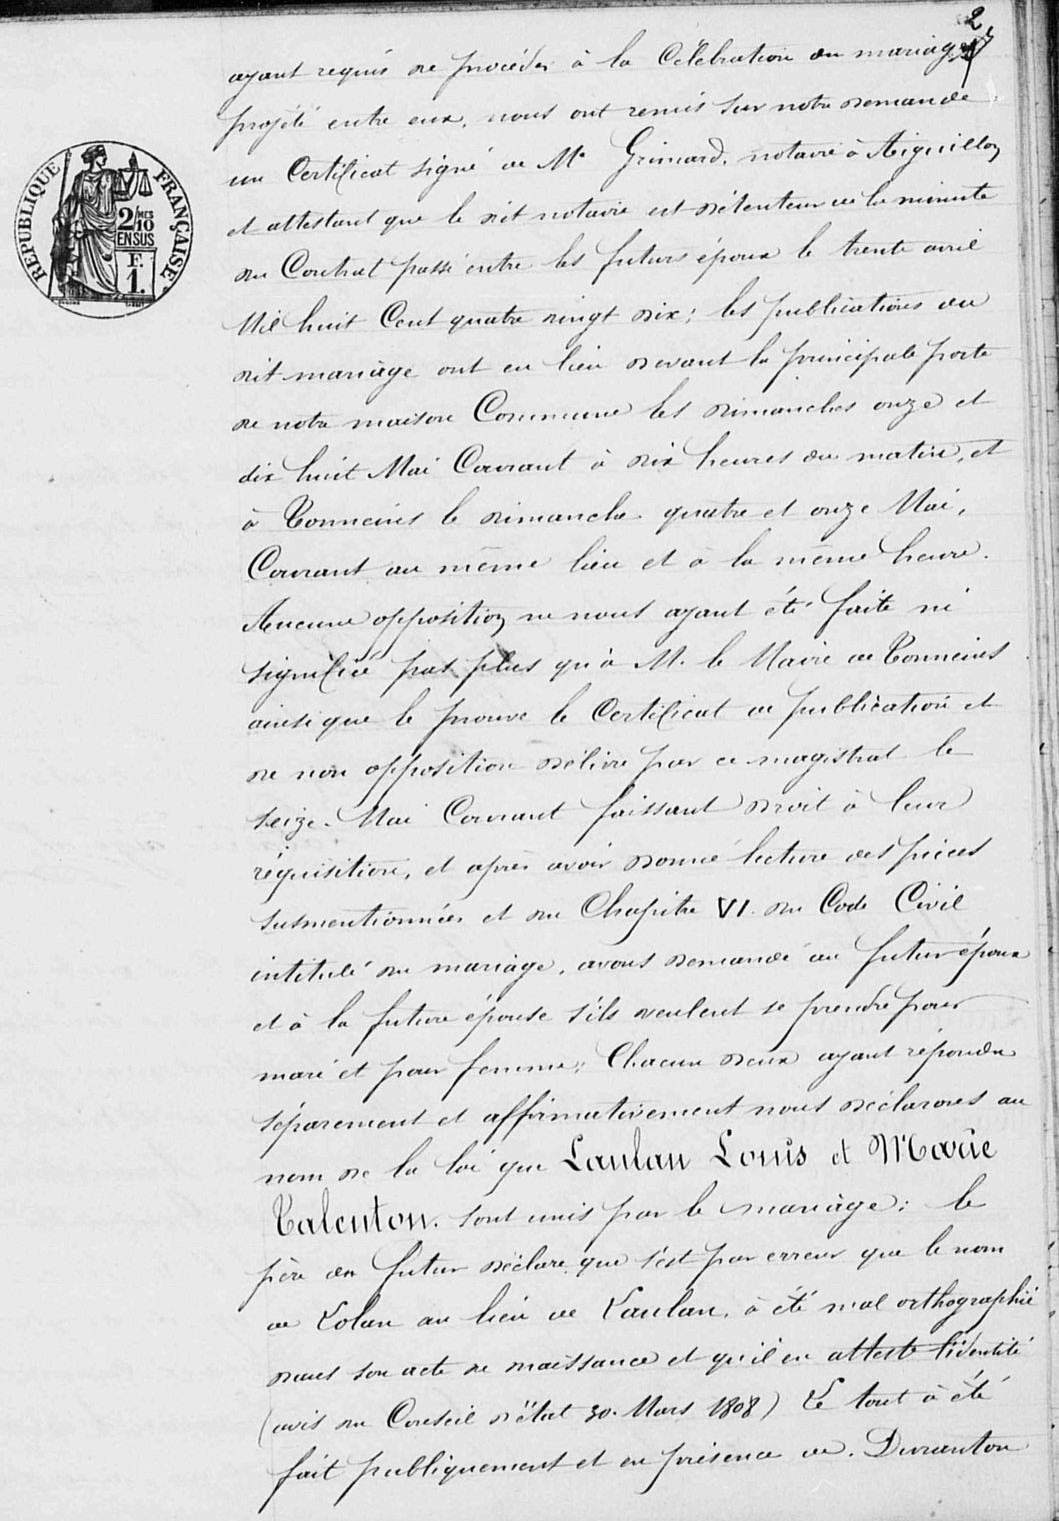 2
ayant requis de procéder à la Célébration du mariage
projeté entre eux, nous ont remis sur notre demande
un Certificat signé de Me Grimard, notaire à Aiguillon
et attestant que le dit notaire est détenteur de la minute
du Contrat passé entre les futurs époux le trente avril
Mil huit Cent quatre vingt dix; les publications du
dit mariage ont eu lieu devant la principale porte
de notre maison Commune les dimanches onze et
dix huit Mai Courant à dix heures du matin, et
à Tonneins le dimanche quatre et onze Mai,
Courant au même lieu et à la même heure.
Aucune opposition ne nous ayant été faite ni
signifiée pas plus qu'à M. le Maire de Tonneins
ainsi que le prouve le Certificat de publication et
de non opposition délivré par ce magistrat le
seize Mai Courant faissant droit à leur
réquisition, et après avoir donné lecture des pièces
susmentionnées et du Chapitre VI. du Code Civil
intitulé du mariage, avons demandé au futur époux
et à la future épouse s'ils veulent se prendre pour
mari et pour femme; Chacun deux ayant répondu
séparement et affirmativement nous déclarons au
nom de la loi que Laulan Louis et Marie
Talenton. sont unis par le mariage; le
père du futur déclare que s'est par erreur que le nom
de Lolan au lieu de Laulan, à été mal orthographié
dans son acte de naissance et qu'il en atteste l'identité
(avis du Conseil d'état 30 Mars 1808) Le tout à été
fait publiquement et en présence de. Duranton
RÉPUBLIQUE FRANÇAISE.
2/10 MES
EN SUS
F.
1.